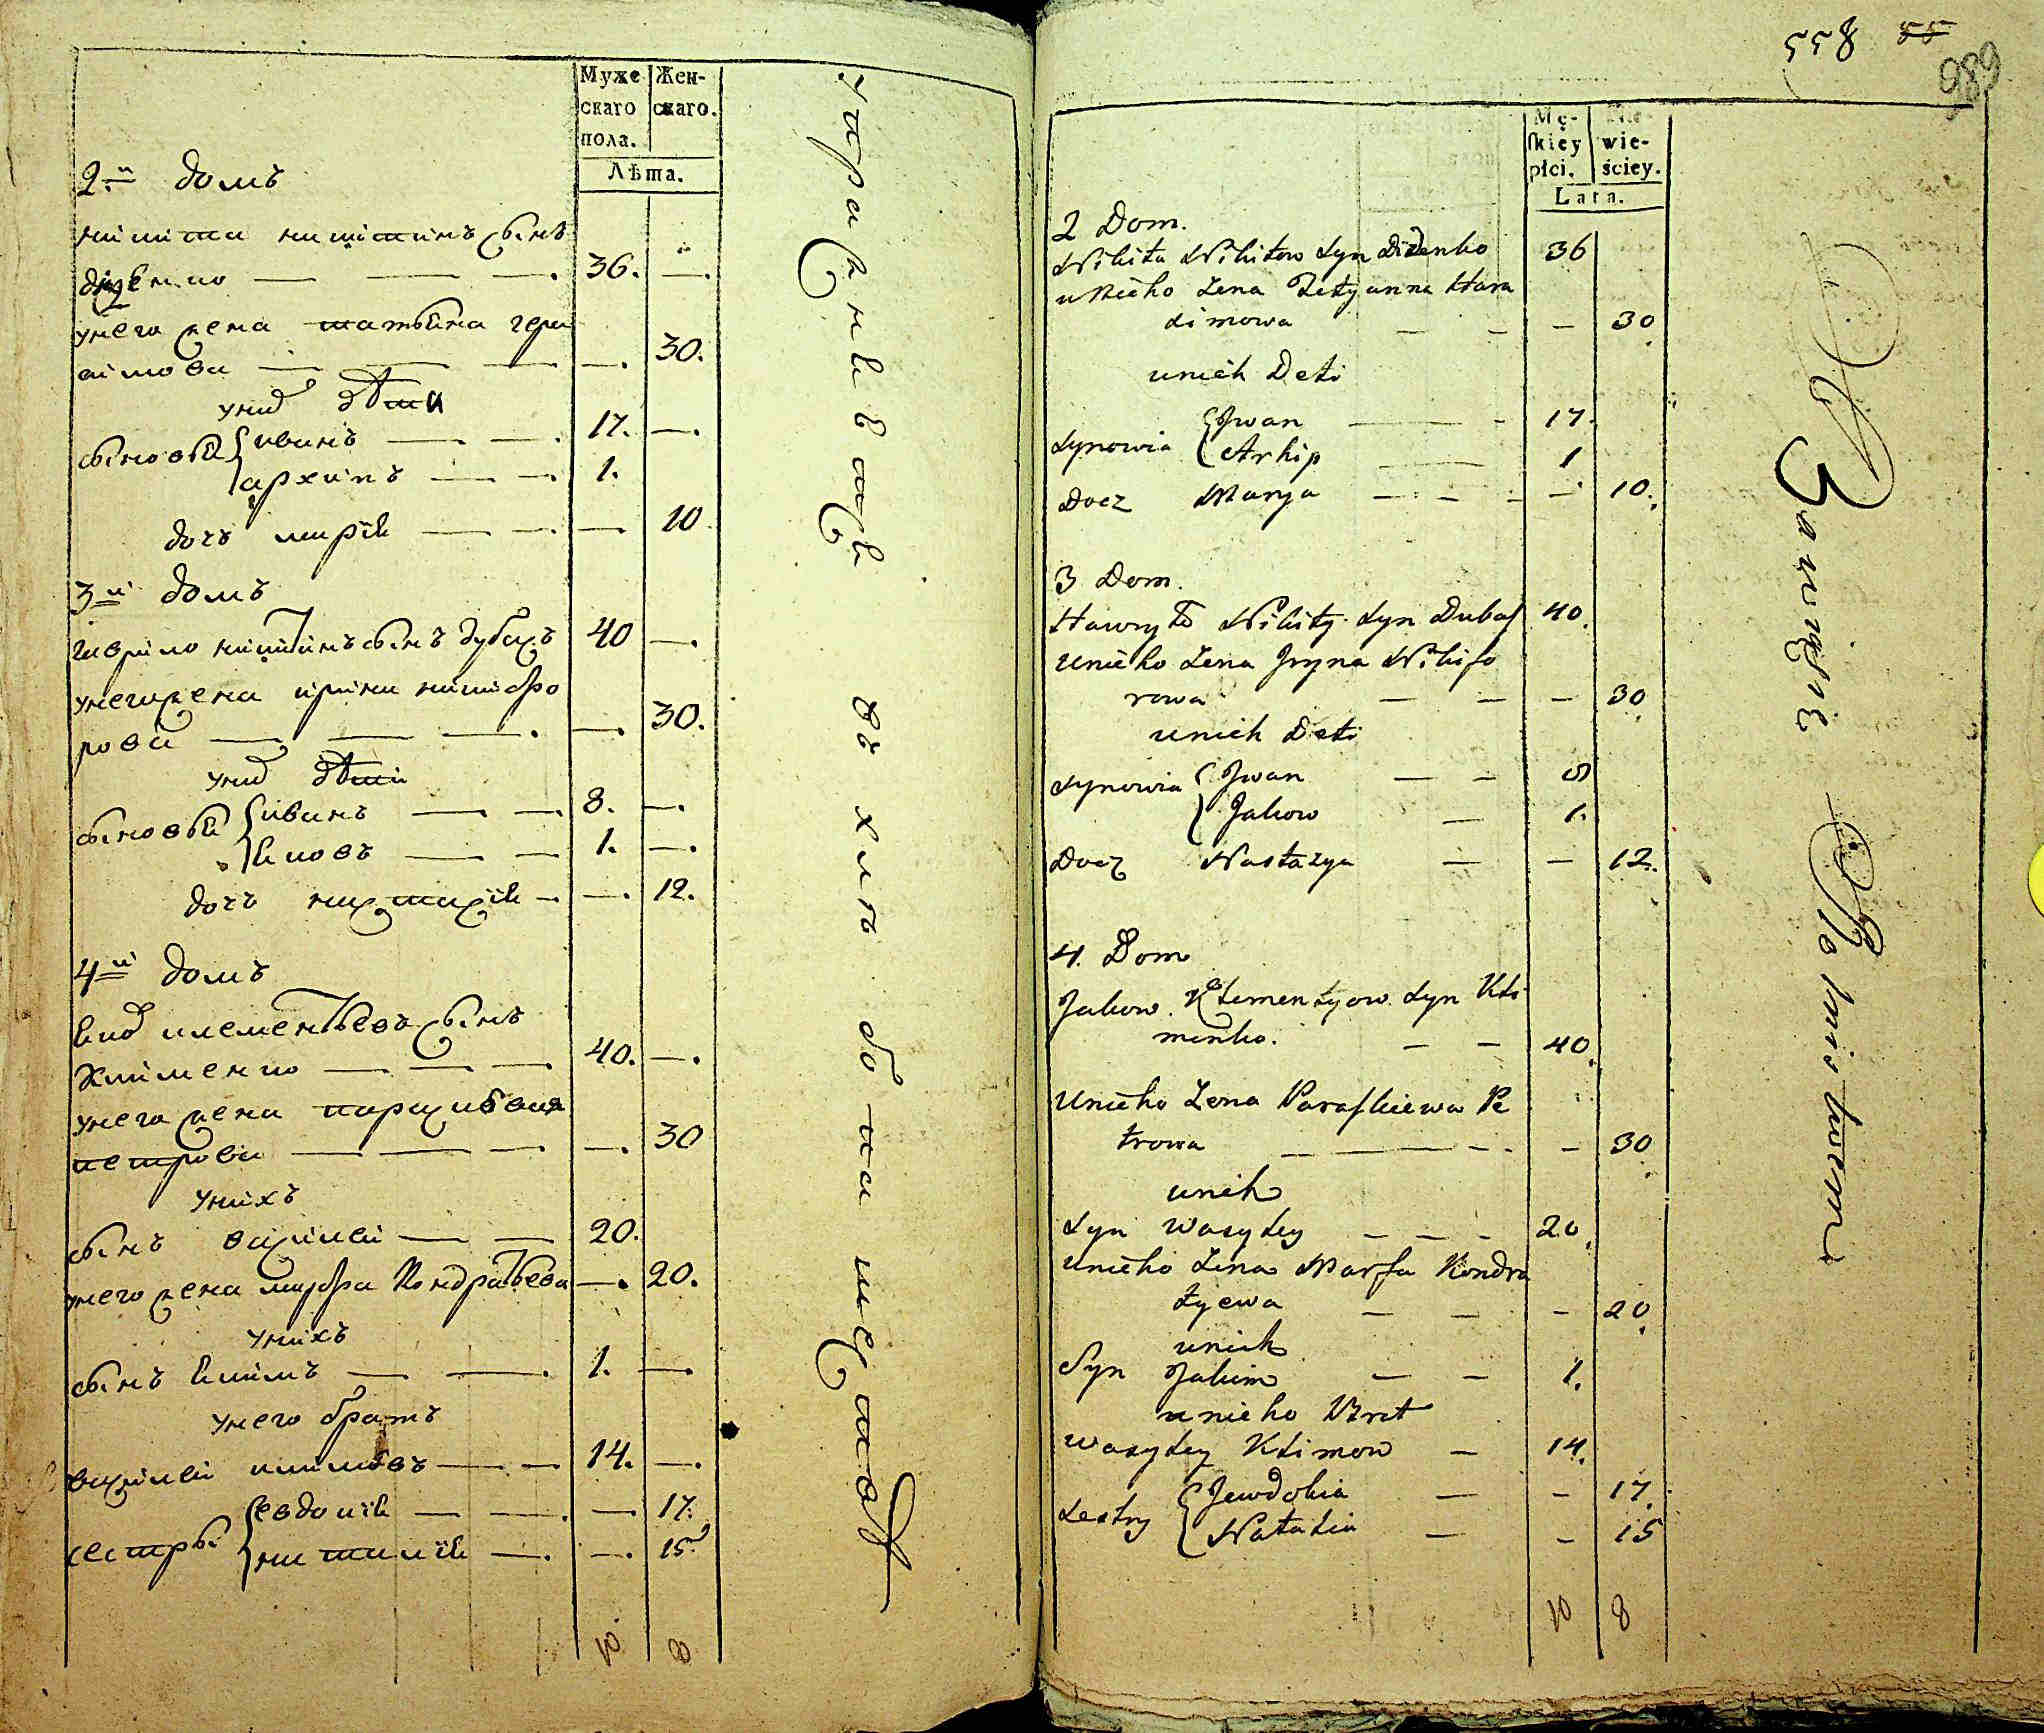 Муже
скаго
пола.
Жен-
скаго.
Лѣта.
2.й домъ
никита никитинъ сынъ
диденко — — — 36. —.
унего жена татьяна гера
симова — — — —. 30.
уних дѣти
сыновья { иванъ — — 17. —.
архипъ — — 1.
дочь марія — — — 10
3й домъ
гаврило никитинъ сынъ дубасъ 40 —.
унегожена ирина никифо
рова — — — —. 30.
уних дѣти
сыновья { иванъ — — 8. —.
яковъ — — 1. —.
дочь настасія — —. 12.
4й домъ
яков клементьевъ сынъ
клименко — — — 40. —.
унего жена парасковья
петрова — — — —. 30
унихъ
сынъ василей — — 20.
унего жена марфа Кондратьева —. 20.
унихъ
сынъ якимъ — — 1. —.
унего братъ
василей климовъ — — 14. —.
сестры { евдокія — — —. 17.
наталія — —. 15.
10 8
558 55
989
Mę-
skiey
płci.
Nie-
wie-
ściey.
Lata.
2 Dom.
Nikita Nikitow Syn Didenko 36
u Nieho Żena Tetyanna Hara
simowa — — — 30
unich Deti
Synowia { Jwan — - 17.
Arhip — 1
Docz Marya — - - — 10.
3 Dom.
Hawryło Nikity Syn Dubas 40.
Unieho Żena Jryna Nikifo
rowa — — — 30
unich Deti
Synowia { Jwan — — 8
Jakow — 1.
Docz Nastazya — — 12.
4. Dom
Jakow Klementyow Syn Kli
menko. — — 40.
Unieho Żona Paraskiewa Pe
trowa — — — - - — 30
unich
Syn Wasyley — — - 20.
Unieho Żena Marfa Kondra
tyewa — — — 20.
unich
Syn Jakim — — 1.
unieho Brat
Wasyley Klimow — 14.
Sestry { Jewdokia — — 17.
Natalia — — 15
10 8